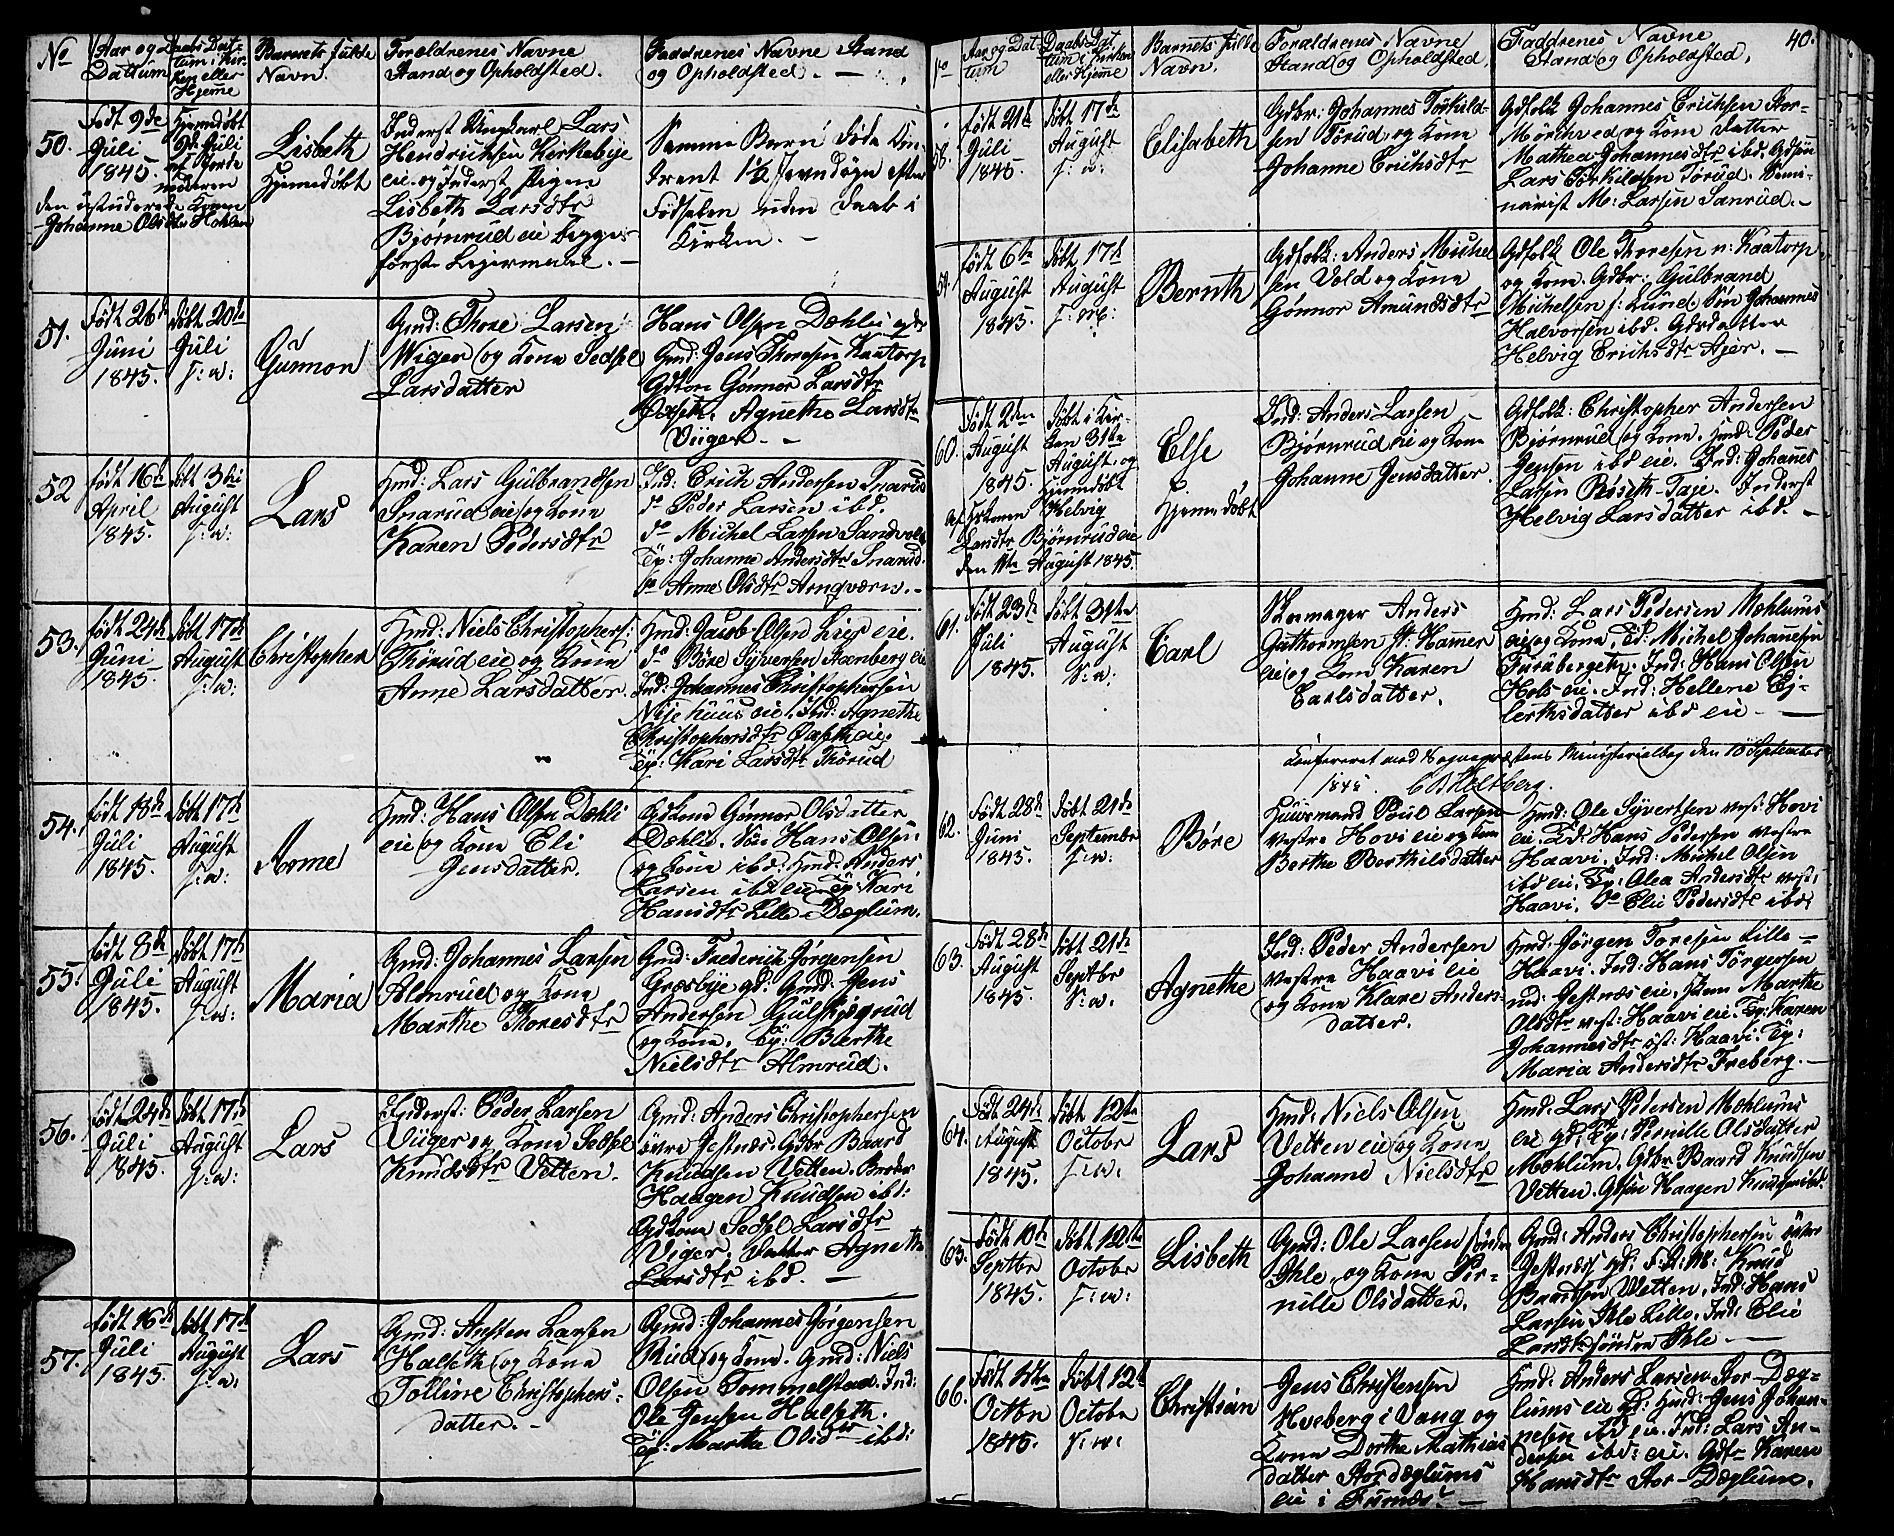 No
Aar og
Dattum
Daabs Dat-
tum i Kir-
ken eller
Hjeme
Barnets fulde
Navn.
Foraldrenes Navne
Stand og Opholdsted.
Faddrenes Navne Stand
og Opholdsted. —
50.
Født 9de
Juli
1845.
Hjemedøbt
9de Juli
af Jorde
moderen
den istuderede Konen
Johanne Olsdtr Hohlen
Lisbeth
Hjemedøbt
Inderst Ungkarl Lars
Hendrichsen Kirkebÿe
eie. og Inderst Pigen
Lisbeth Larsdtr
Bjørnrud eie begges
første Lejermaal. —
Samme Barn døde
1½ Jevndøgn efter
Fødselen uden Daab i
Kirken. —
51.
Født 26de
Juni
1845.
døbt 20de
Juli
f: w:
Gunnon
Gmd: Thore Larsen
Wiger og Kone Sedsel
Larsdatter
Hans Olsen Dæhli
Gmd: Jens Thoresen Kaatorp
Gdkone Gønnor Larsdtr
Agnethe Larsdtr
Viiger. —
52
født 16de
April
1845.
døbt 3die
August
f: w:
Lars
Hmd: Lars Gulbrandsen
Snarud eie og Kone
Karen Pedersdtr
Ind: Erich Andersen Snarud
do Peder Larsen ibd.
do Michel Larsen Sandvold
Tp: Johanne Andersdtr Snarud.
do Anne Olsdtr Arnqværn. —
53.
født 24de
Juni
1845.
døbt 17de
August
f: w:
Christopher
Hmd: Niels Christophers:
Thørud eie og Kone
Anne Larsdatter.
Hmd: Jacob Olsen Lier eie.
do Børe Sÿversen Steenberg eie
Ind: Johannes Christophersen
Nÿe huus eie. Ind: Agnethe
Christophersdtr
Tp: Kari Larsdtr Thørud
54.
født 18de
Juli
1845.
døbt 17de
August
f: w:
Anne
Hmd: Hans Olsen Dæhli
eie og Kone Eli
Jensdatter.
Gdkone Gunnor Olsdatter
Dæhli. Søn Hans Olsen
og Kone ibd: Hmd: Anders
Larsen ibd eie Tp: Kari
Hansdtr Lille Dæglum.
55.
født 8de
Juli
1845.
døbt 17de
August
f: w:
Maria
Gmd: Johannes Larsen
Almrud og Kone
Marthe Thoresdtr
Gmd: Frederich Jørgensen
Græsbÿe gd: Gmd: Jens
Andersen Gulskjøgrud
og Kone. Tp: Berthe
Nielsdtr Almrud.
56.
født 24de
Juli
1845.
døbt 17de
August
f: w:
Lars
Inderst: Peder Larsen
Viiger og Kone Sedsel
Knudsdtr Vetten.
Gmd: Anders Christophersen
øvre Jestnæs. Gdbr Baard
Knudsen Vetten. Broder
Haagen Knudsen ibd:
Gdkone Sedsel Larsdtr
Viger. Datter Agnethe
Larsdtr ibd. —
57.
født 16de
Juli
1845.
døbt 17de
August
f: w:
Lars
Gmd: Austen Larsen
Halseth og Kone
Tolline Christophers-
datter. —
Gmd: Johannes Jørgensen
Rud og Kone. Gmd: Niels
Olsen Tommelstad. Ind:
Ole Jensen Halseth.
Tp: Marthe Olsdtr ibd:
40.
No
Aar og Dat-
tum
Daabs Dat-
tum i Kirken
eller Hjeme
Barnets fulle
Navn.
Foraldrenes Navne
Stand og Opholdsted.
Faddrenes Navne
Stand og Opholdsted.
58.
født 21de
Juli
1845.
døbt 17de
August
f: w:
Elisabeth
Gdbr: Johannes Torkild-
sen Torud og Kone
Johanne Erichsdtr
Gdfolk Johannes Erichsen Stor-
Mørchved og Kone Datter
Mathea Johannesdtr ibd. Gdsøn
Lars Torkildsen Torud. Semi-
narist M: Larsen Sanrud. —
59.
født 6te
August
1845.
døbt 17de
August
Bernth
Gdfolk: Anders Michel
sen Vold og Kone
Gønnor Amundsdtr
Gdfolk Ole Thoresen n: Kaatorp
og Kone. Gdbr: Gulbrand
Michelsen s: Lund Søn Johannes
Halvorsen ibd. Gdsdatter
Helvig Erichsdtr Ajer. —
60.
født 2den
August
1845.
døbt i Kir-
ken 31te
August. og
Hjemedøbt
af Hskonen Helvig
Larsdtr Bjørnrud eie
den 11te August 1845.
Else
Hjemedøbt
Ind: Anders Larsen
Bjørnrud eie og Kone
Johanne Jensdatter.
Gdfolk: Christopher Andersen
Bjørnrud og Kone. Hmd: Peder
Jensen ibd eie. Ind: Johanes
Larsen Røseth-Taje. Inderst
Helvig Larsdatter ibd. —
61.
født 23de
Juli
1845.
døbt 31te
August
f: w:
Carl
Skomager Anders
Guthormsen St: Hammer
eie og Kone Karen
Carlsdatter.
Hmd: Lars Pedersen Mæhlums
eie og Kone, Michel Johannesen
Furubergets. Ind: Hans Olsen
Hols eie. Ind: Hellene Ej-
lerthsdatter ibd eie —
Confereret med Sognepræstens Ministerialbog den 18 September
1845. Holtberg.
62.
født 28de
Juni
1845.
døbt 21de
Septembr
f: w:
Børe
Huusmand Poul Larsen
vestre Hovi eie og Kone
Berthe Berthilsdatter
Hmd: Ole Sÿvertsen vest: Hovi
eie. Hans Pedersen vestre
Haavi. Ind: Michel Olsen
ibd eie. Tp: Olea Andersdtr vest:
Haavi. do Elie Pedersdtr ibd:
63.
født 28de
August
1845.
døbt 21de
Septbr
f: w.
Agnethe
Ind: Peder Andersen
vestre Haavi eie
og Kone Klare Anders-
datter.
Hmd: Jørgen Toresen Lille-
Haavi. Ind: Hans Jørgersen
nd: Jestnæs eie, Marthe
Olsdtr vest: Haavi eie. Tp: Karen
Johannesdtr øst: Haavi. Tp:
Maria Andersdtr Freberg. —
64.
født 24de
August
1845.
døbt 12te
Octobr
f: w.
Lars
Hmd: Niels Olsen
Vetten eie og Kone
Johanne Nielsdtr
Hmd: Lars Pedersen Mæhlums
eie gd: Tp: Pernille Olsdatter
Mæhlum. Gdbr Baard Knudsen
Vetten. Gdsøn Haagen Knudsen ibd.
65.
født 10de
Septbr
1845.
døbt 12te
Octobr
f: w:
Lisbeth
Gmd: Ole Larsen søndre
Ihle og Kone Per-
nille Olsdatter.
Gmd: Anders Christophersen øvre
Jestnæs gd: Knud
Baardsen Vetten. Ind: Hans
Larsen Ihle Lille. Ind: Elie
Larsdtr søndre Ihle —
66.
født 1ste
Octbr
1845.
døbt 12te
Octobr
f: w:
Christian
Jens Christensen
Hveberg i Vang og
Kone Dorthe Mathias
datter Stordæglums
eie i Furnæs. —
Hmd: Anders Larsen Stor-Dæg-
lums eie gd: Hmd: Jens Johan-
nesen eie. Ind: Lars An-
dersen ibd: eie. Gdfr Karen
Hansdtr Stor-Dæglum.